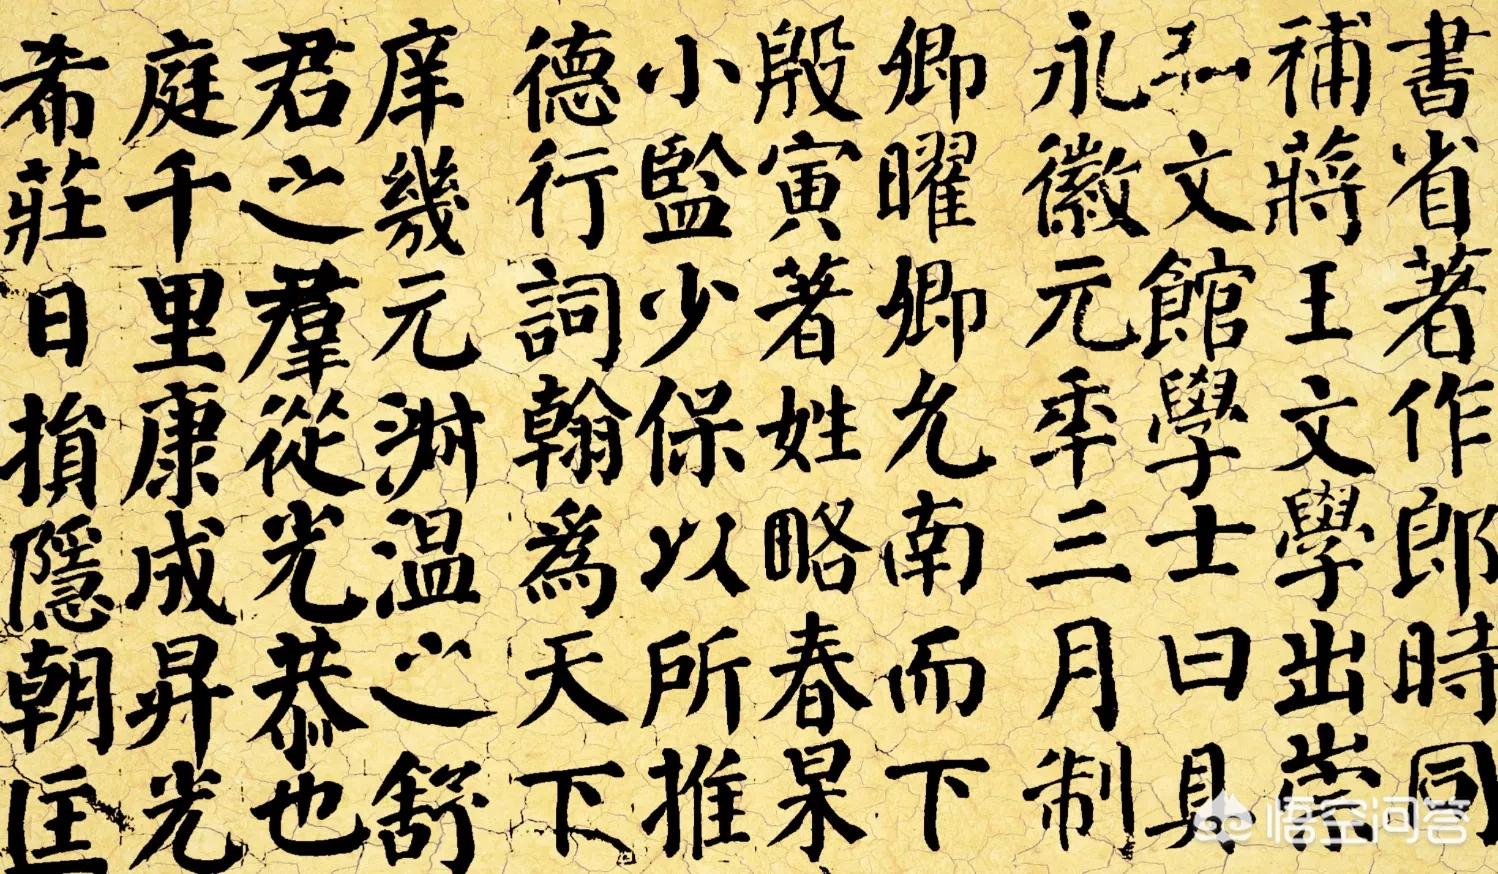 書省著作郎時同
補蔣王文學出崇
弘文館學士曰具
永徽元年三月制
卿曜卿允南而下
殷寅著姓略春杲
小監少保以所推
德行詞翰爲天下
庠幾元淑温之舒
君之羣從光恭也
庭千里康成昇光
希莊日損隱朝匡
悟空问答